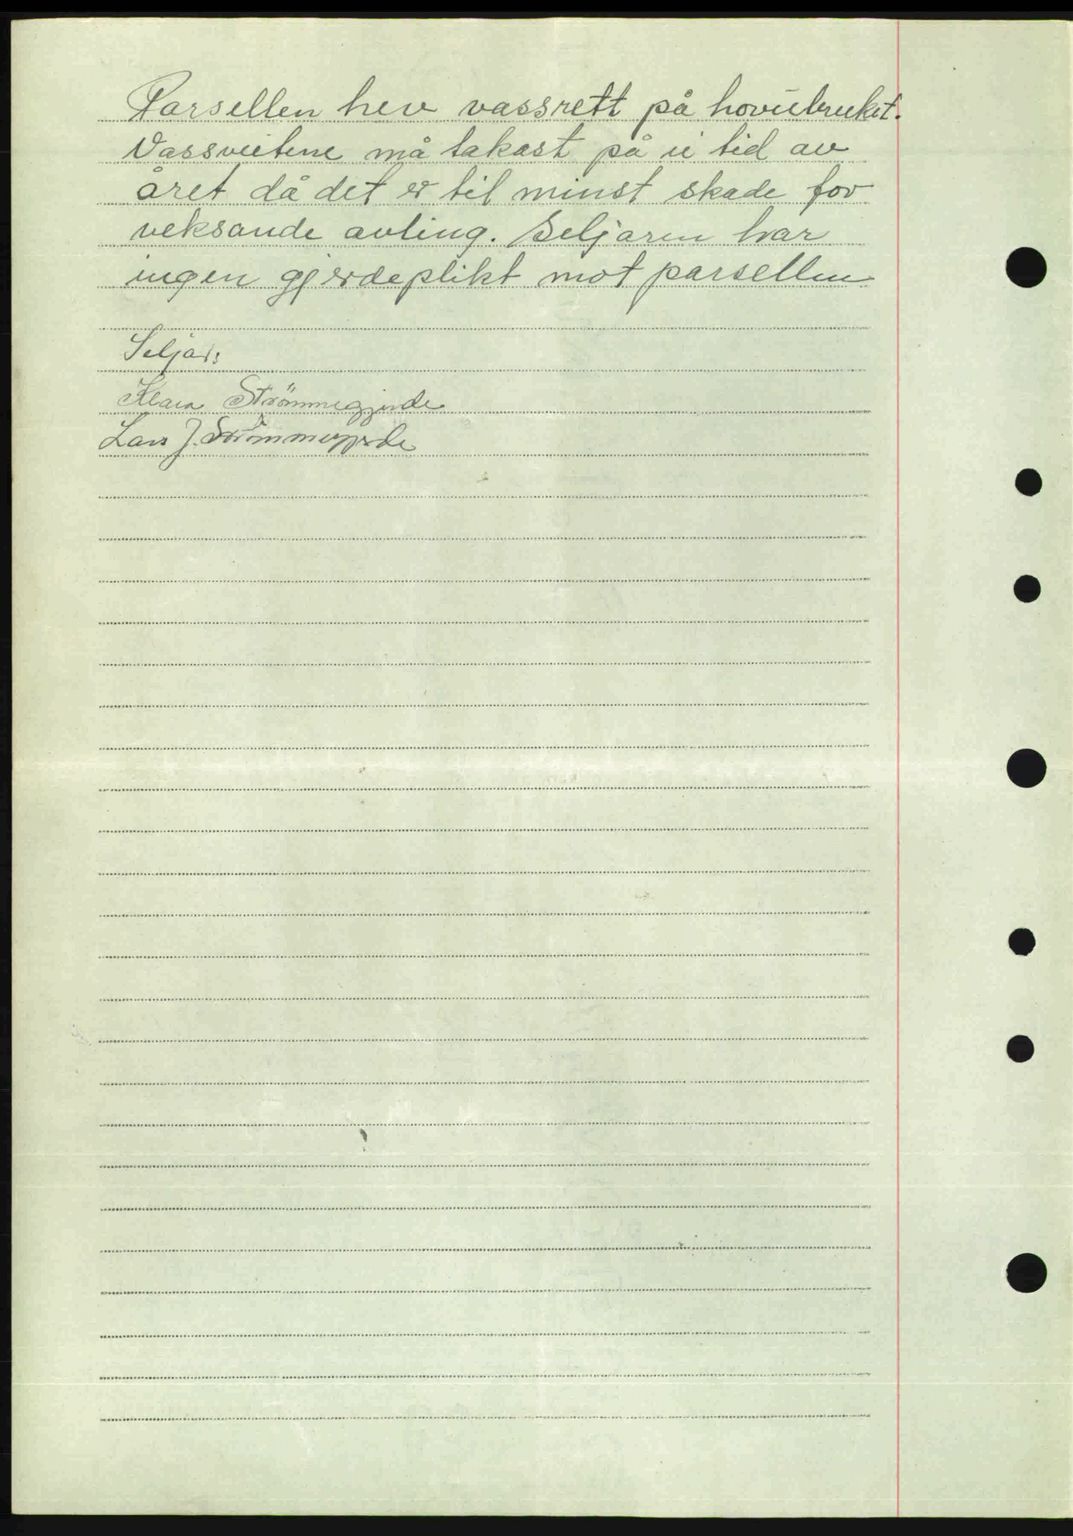 Parsellen hev vassrett på hovudbruket.
Vassveitene må takast på ei tid av
året då det er til minst skade for
veksande avling. Seljaren har
ingen gjerdeplikt mot parsellen
Seljar:
Klara Strömmegjerde
Lars J. Strömmegjerde